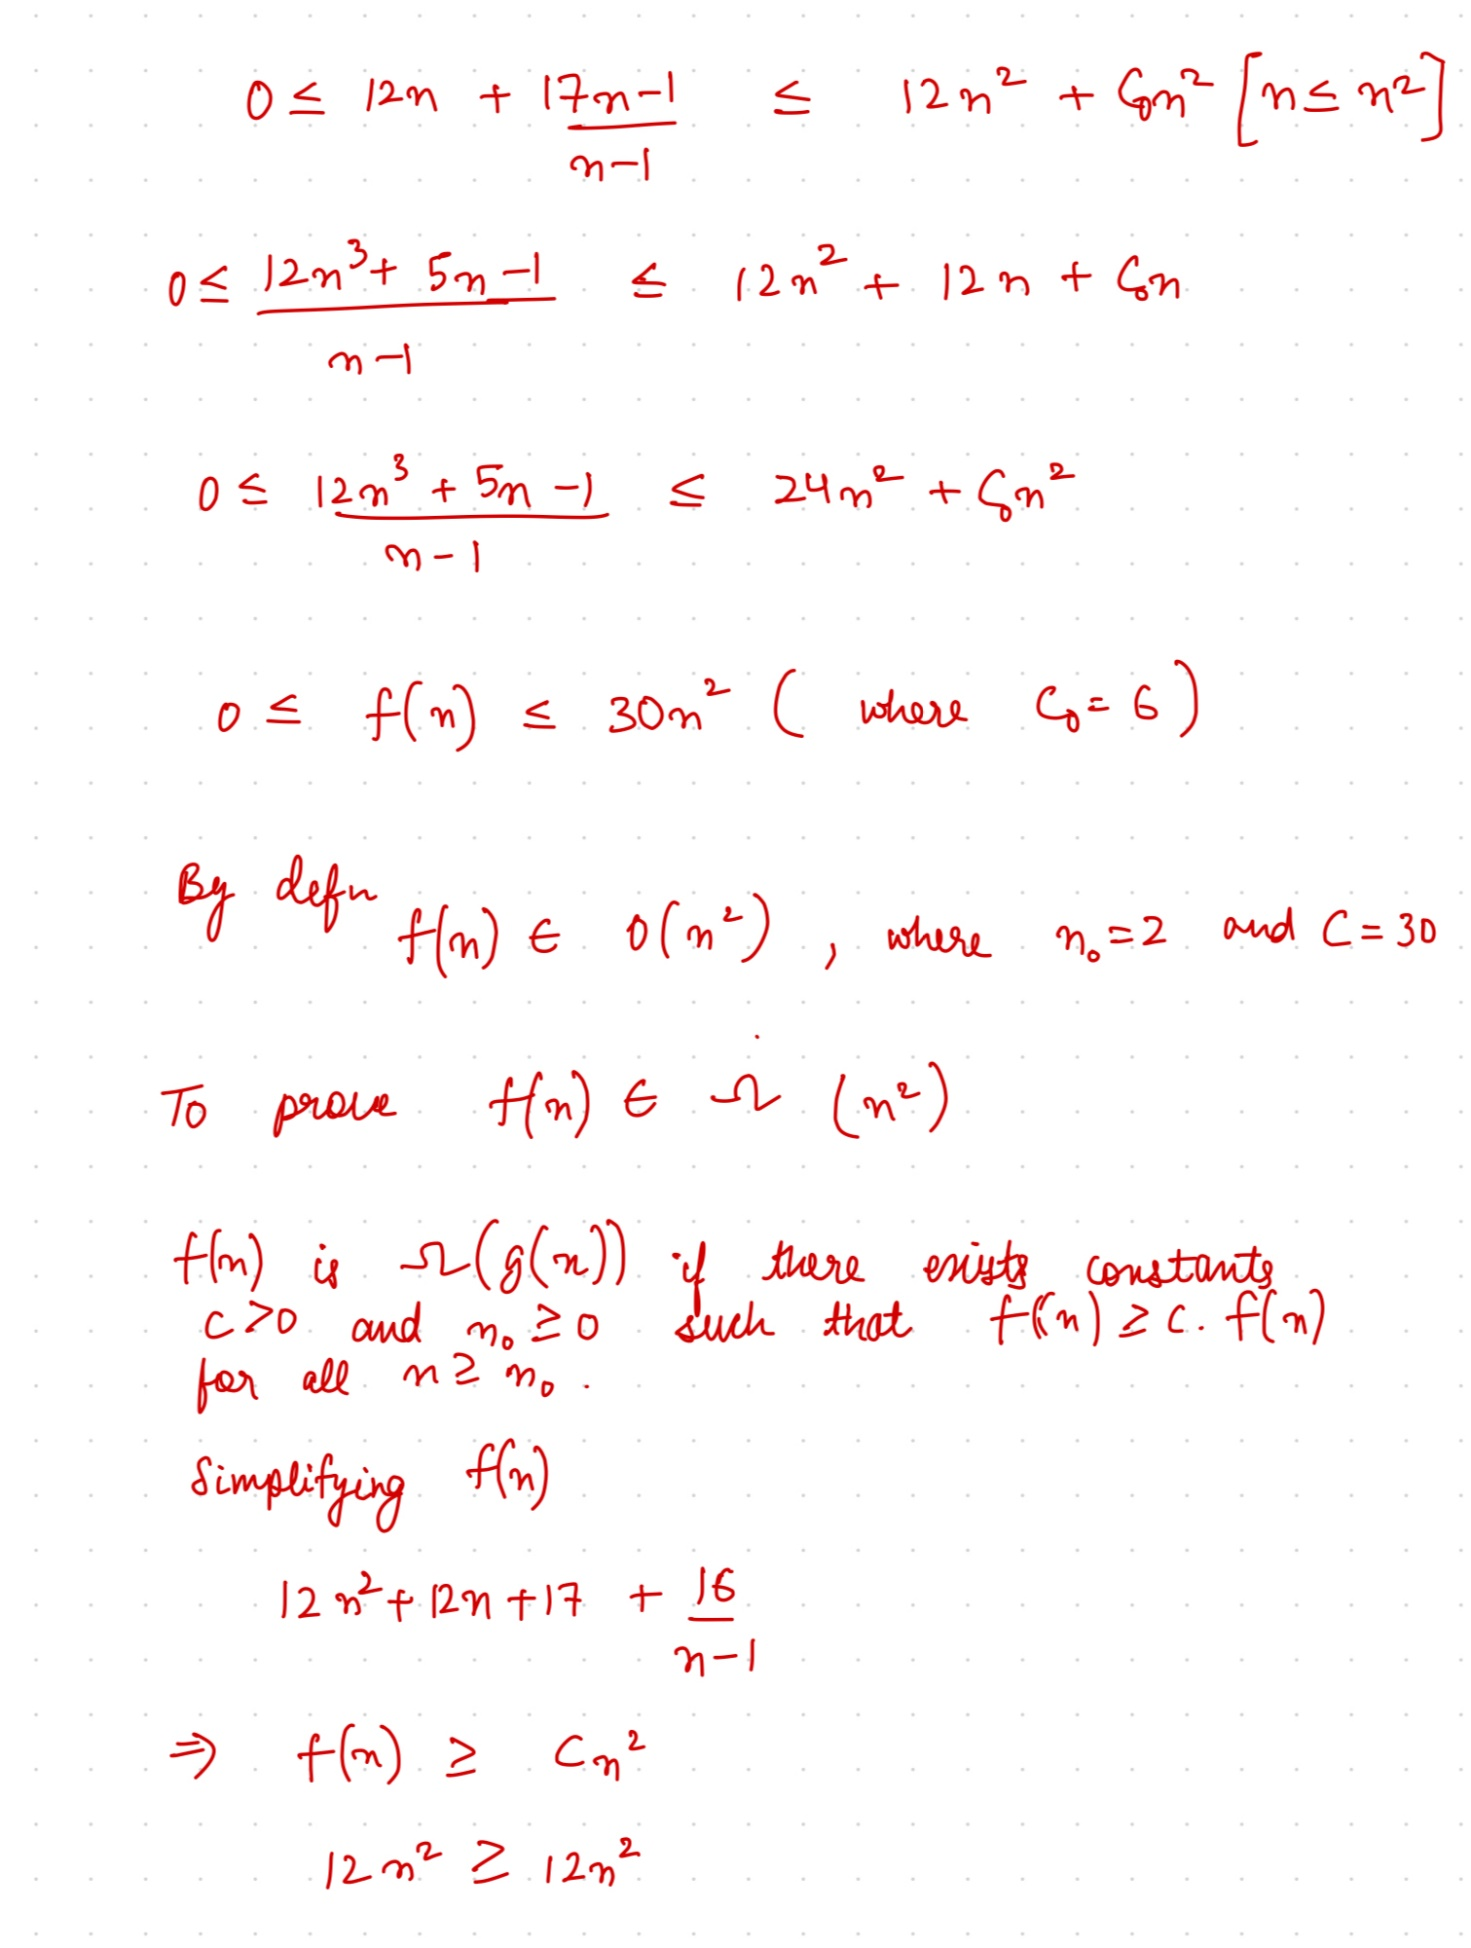 0 ≤ 12n + (17n-1)/(n-1) ≤ 12n² + C₀n² [n ≤ n²]
0 ≤ (12n³ + 5n - 1)/(n-1) ≤ 12n² + 12n + C₀n
0 ≤ (12n³ + 5n - 1)/(n-1) ≤ 24n² + C₀n²
0 ≤ f(n) ≤ 30n² ( where C₀ = 6 )
By defn f(n) ∈ O(n²) , where n₀ = 2 and C = 30
To prove f(n) ∈ Ω (n²)
f(n) is Ω(g(n)) if there exists constants
c > 0 and n₀ ≥ 0 such that f(n) ≥ c. f(n)
for all n ≥ n₀ .
Simplifying f(n)
12n² + 12n + 17 + 16/(n-1)
⇒ f(n) ≥ Cn²
12n² ≥ 12n²